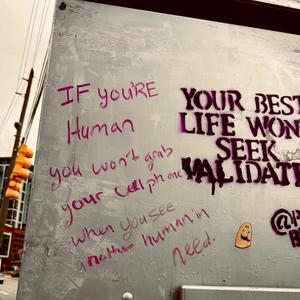 IF YOU'RE
Human
you won't grab
your cell phone
when you see
another human in
need.
YOUR BEST
LIFE WON
SEEK
VALIDAT